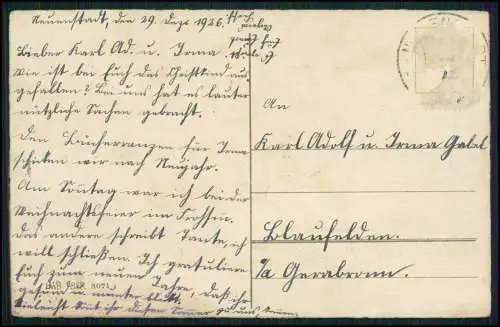 Neuenstadt, den 29. Dez. 1926.
Lieber Karl Ad. u. Irma.
Wie ist bei Euch das Christkind aus-
gefallen? Bei uns hat es lauter
nützliche Sachen gebracht.
Den Bücherranzen für Irma
schicken wir nach Neujahr.
Am Sonntag war ich bei der
Weihnachtsfeier im
Das andere schreibt Tante, ich
will schließen. Ich gratuliere
Euch zum neuen Jahre, daß ihr
gesund u. munter bleibt.
Vielleicht ihr diesen zu uns
An
Karl Adolf u. Irma Gabel
Blaufelden.
O/a Gerabronn.